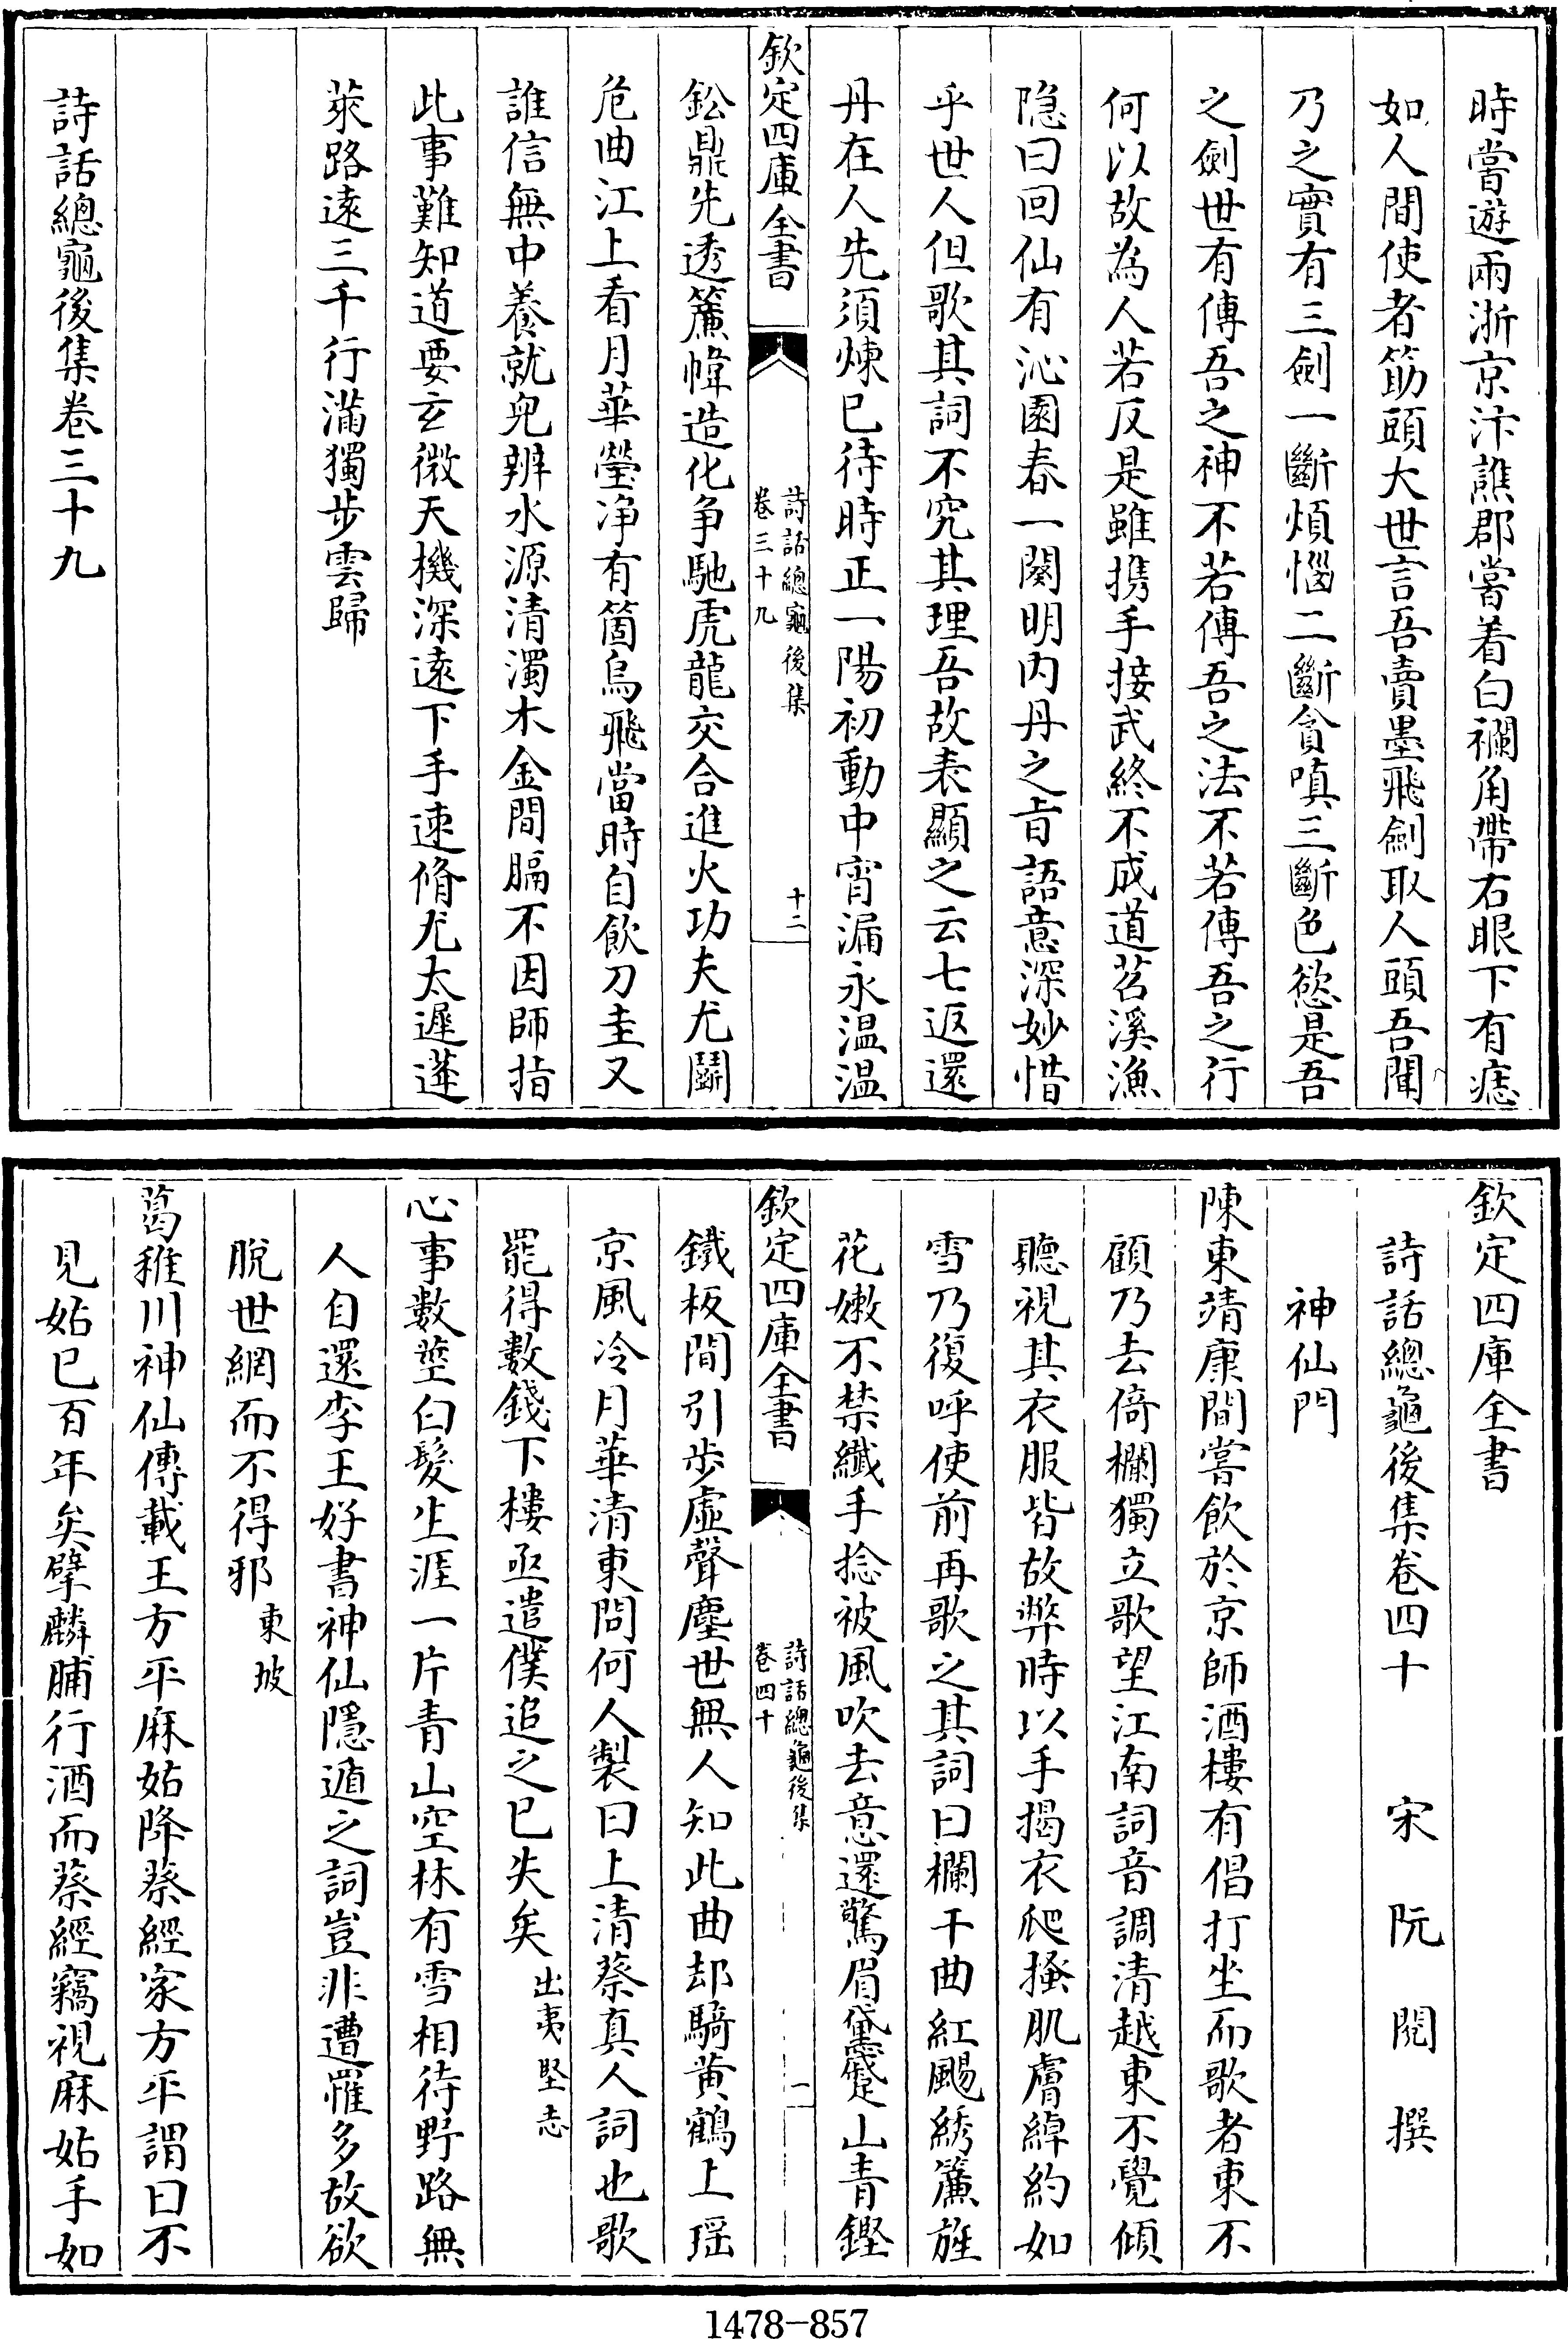 時嘗遊兩浙京汴譙郡嘗着白襴角帶右眼下有痣
如人間使者筯頭大世言吾賣墨飛劍取人頭吾聞
乃之實有三劍一斷煩惱二斷貪嗔三斷色慾是吾
之劍世有傳吾之神不若傳吾之法不若傳吾之行
何以故為人若反是雖携手接武終不成道苕溪漁
隐曰回仙有沁園春一闋明内丹之旨語意深妙惜
乎世人但歌其詞不究其理吾故表顯之云七返還
丹在人先須煉已待時正一陽初動中宵漏永温温
欽定四庫全書
詩話總龜後集
卷三十九
十二
鈆鼎先透簾幃造化争馳虎龍交合進火功夫尤鬭
危曲江上看月華瑩净有箇烏飛當時自飲刀圭又
誰信無中養就兒辨水源清濁木金間膈不因師指
此事難知道要玄微天機深遠下手速脩尤太遲蓬
萊路遠三千行滿獨步雲歸
詩話總龜後集卷三十九
欽定四庫全書
詩話總龜後集卷四十 宋 阮 閱 撰
神仙門
陳東靖康間嘗飲於京師酒樓有倡打坐而歌者東不
顧乃去倚欄獨立歌望江南詞音調清越東不覺傾
聽視其衣服皆故弊時以手揭衣爬搔肌膚綽約如
雪乃復呼使前再歌之其詞曰欄干曲紅颺綉簾旌
花嫩不禁纖手捻被風吹去意還驚眉黛蹙山青鏗
欽定四庫全書
詩話總龜後集
卷四十
一
鐵板間引步虛聲塵世無人知此曲却騎黄鶴上瑶
京風冷月華清東問何人製曰上清蔡真人詞也歌
罷得數錢下樓亟遣僕追之已失矣出夷堅志
心事數莖白髮生涯一片青山空林有雪相待野路無
人自還李王好書神仙隱遁之詞豈非遭罹多故欲
脫世網而不得邪東坡
葛稚川神仙傳載王方平麻姑降蔡經家方平謂曰不
見姑已百年矣擘麟脯行酒而蔡經竊視麻姑手如
1478-857